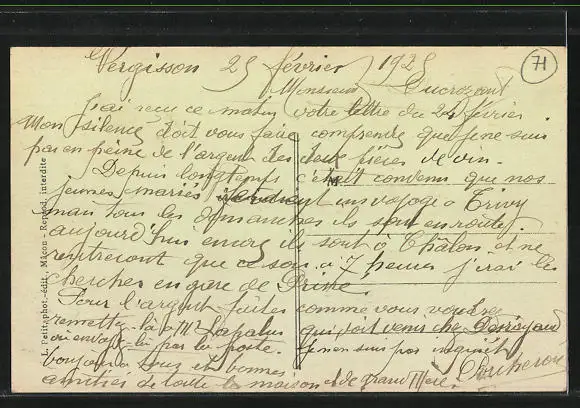 71
Vergisson 25 février 1925
Monsieur
J'ai reçu ce matin votre lettre du 24 février.
Mon silence doit vous faire comprendre que je ne suis
pas en peine de l'argent des deux pièces de vin.
Depuis longtemps c'était convenu que nos
jeunes mariés un voyage à Trivy
mais tous les dimanches ils sont en route.
aujourd'hui encore ils sont à Châlon et ne
rentreront que ce soir à 7 heures j'irai les
chercher en gare de Prissé.
Pour l'argent faites comme vous voudrez
remettez-là à Mr qui doit venir chez
ou envoyez-la par la poste. Je n'en suis pas inquiet
Bonjour à tous et bonnes
amitiés de toute la maison et de grand Mère.
L. Petit, phot.-édit., Mâcon - Reprod. interdite